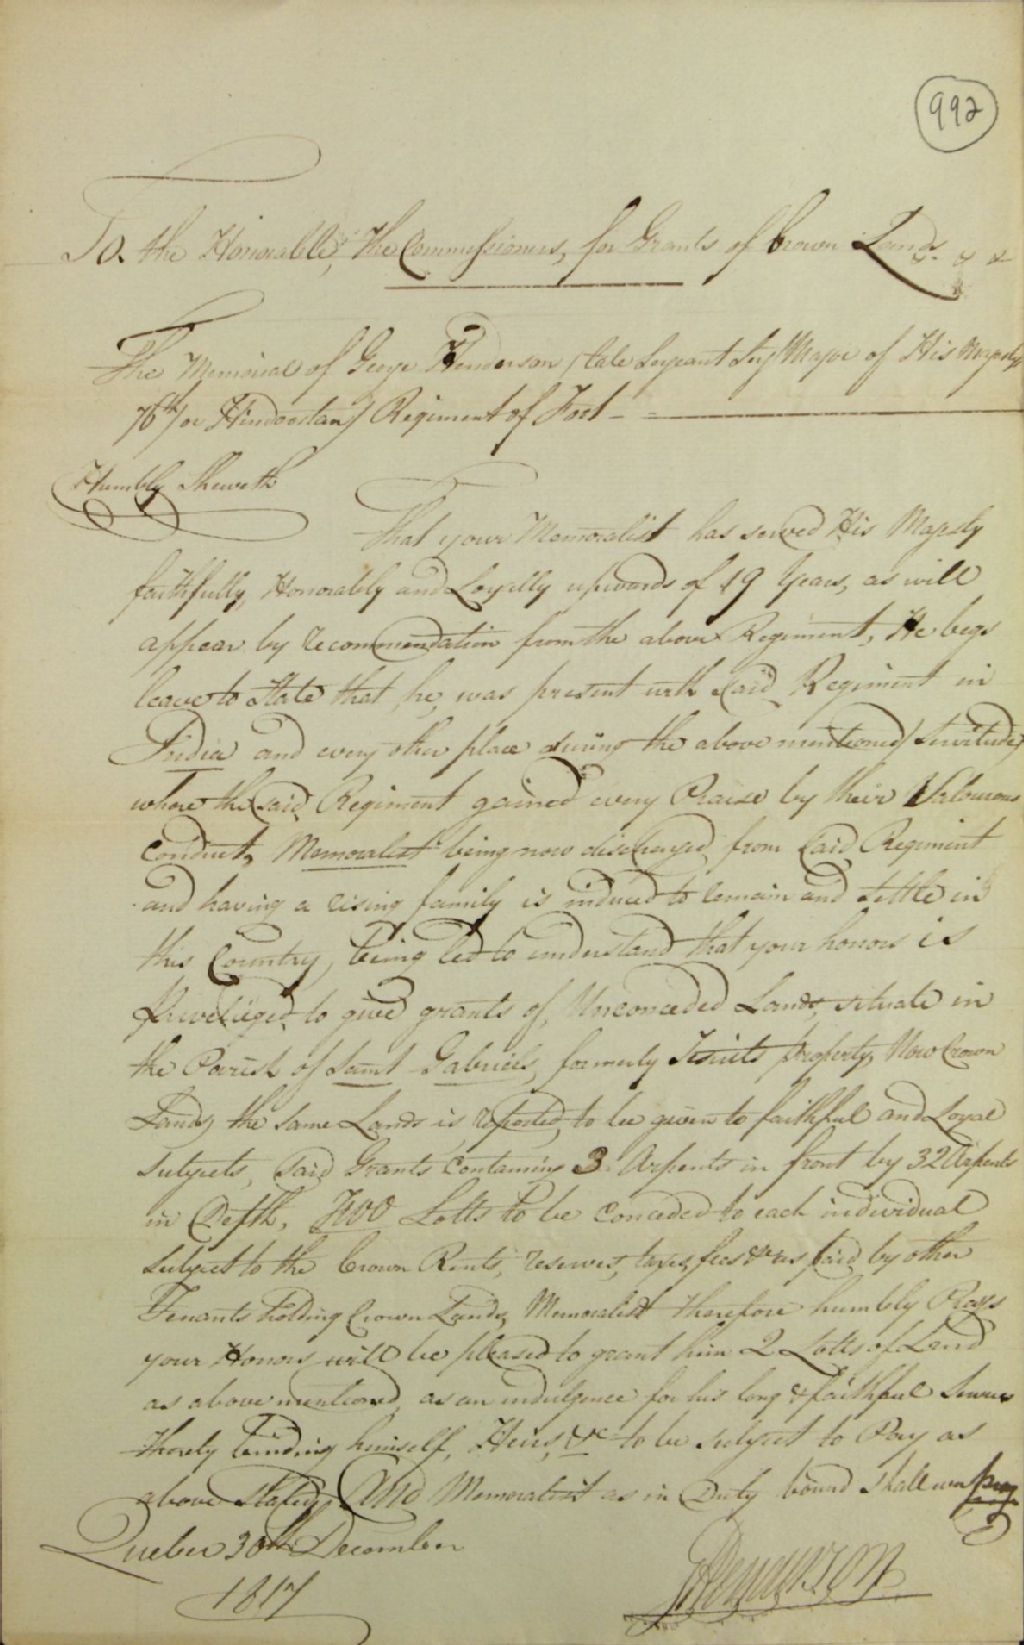 992
To. the Honorable, the Commissioners, for Grants of Crown Lands. & &
The Memorial of George Henderson (late Serjeant Major of His Majesty's
76th (or Hindoostan) Regiment of Foot
Humbly Sheweth
That your Memorialist has served His Majesty
faithfully, Honorably and Loyally upwards of 19 Years, as will
appear by recommendation from the above Regiment, He begs
leave to State that he, was present with Said Regiment in
India and every other place during the above mentioned Servitude,
where the Said Regiment gained every Praise by their Valourous
Conduct, Memorialist being now discharged from Said Regiment
and having a rising family is induced to remain and settle in
this Country, being led to understand that your honors is
Priveliged to give grants of, Unconceded Lands, situate in
the Parish of Saint Gabriels, formerly Jesuits property, Now Crown
Lands, the same Lands is reported, to be given to faithful and Loyal
Subjects, Said Grants Containing 3 Arpents in front by 32 Arpents
in Depth, TWO Lotts to be Conceded to each individual
Subject to the Crown Rents, reserves, taxes, fees &c as paid by other
Tenants holding Crown Lands, Memorialist therefore humbly Prays
your Honors will be pleased to grant him 2 Lotts of Land
as above mentioned, as an indulgence for his long & faithful Services
thereby binding himself, Heirs, &c to be subject to Pay as
above Stated, And Memorialist as in Duty bound Shall ever pray
Quebec 30th December
1817
Henderson